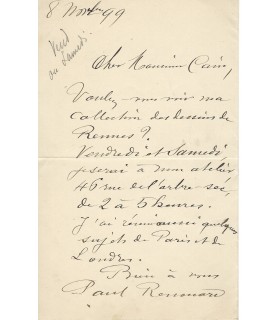 8 Novbre 99
Vend
ou Samedi
Cher Monsieur Cain,
Voulez-vous voir ma
collection des dessins de
Rennes ?
Vendredi et Samedi
je serai à mon atelier
46 rue de l'arbre-sec,
de 2 à 5 heures.
J'ai réuni aussi quelques
sujets de Paris et de
Londres.
Bien à vous
Paul Renouard